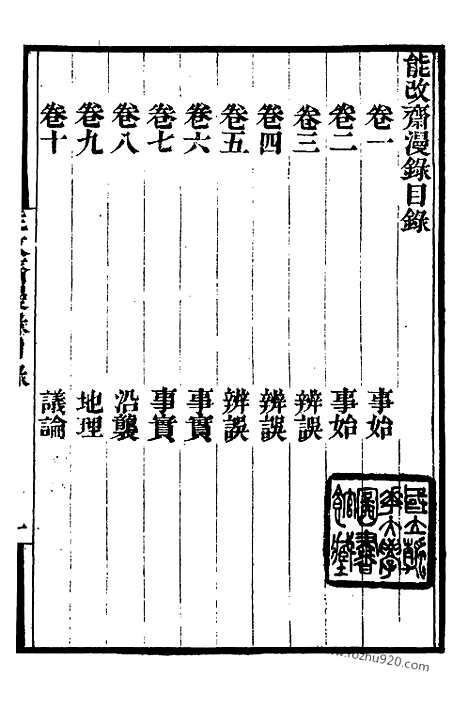 能改齋漫錄目錄
卷一 事始
卷二 事始
卷三 辨誤
卷四 辨誤
卷五 辨誤
卷六 事實
卷七 事實
卷八 沿襲
卷九 地理
卷十 議論
國立清
華大學
圖書
館藏